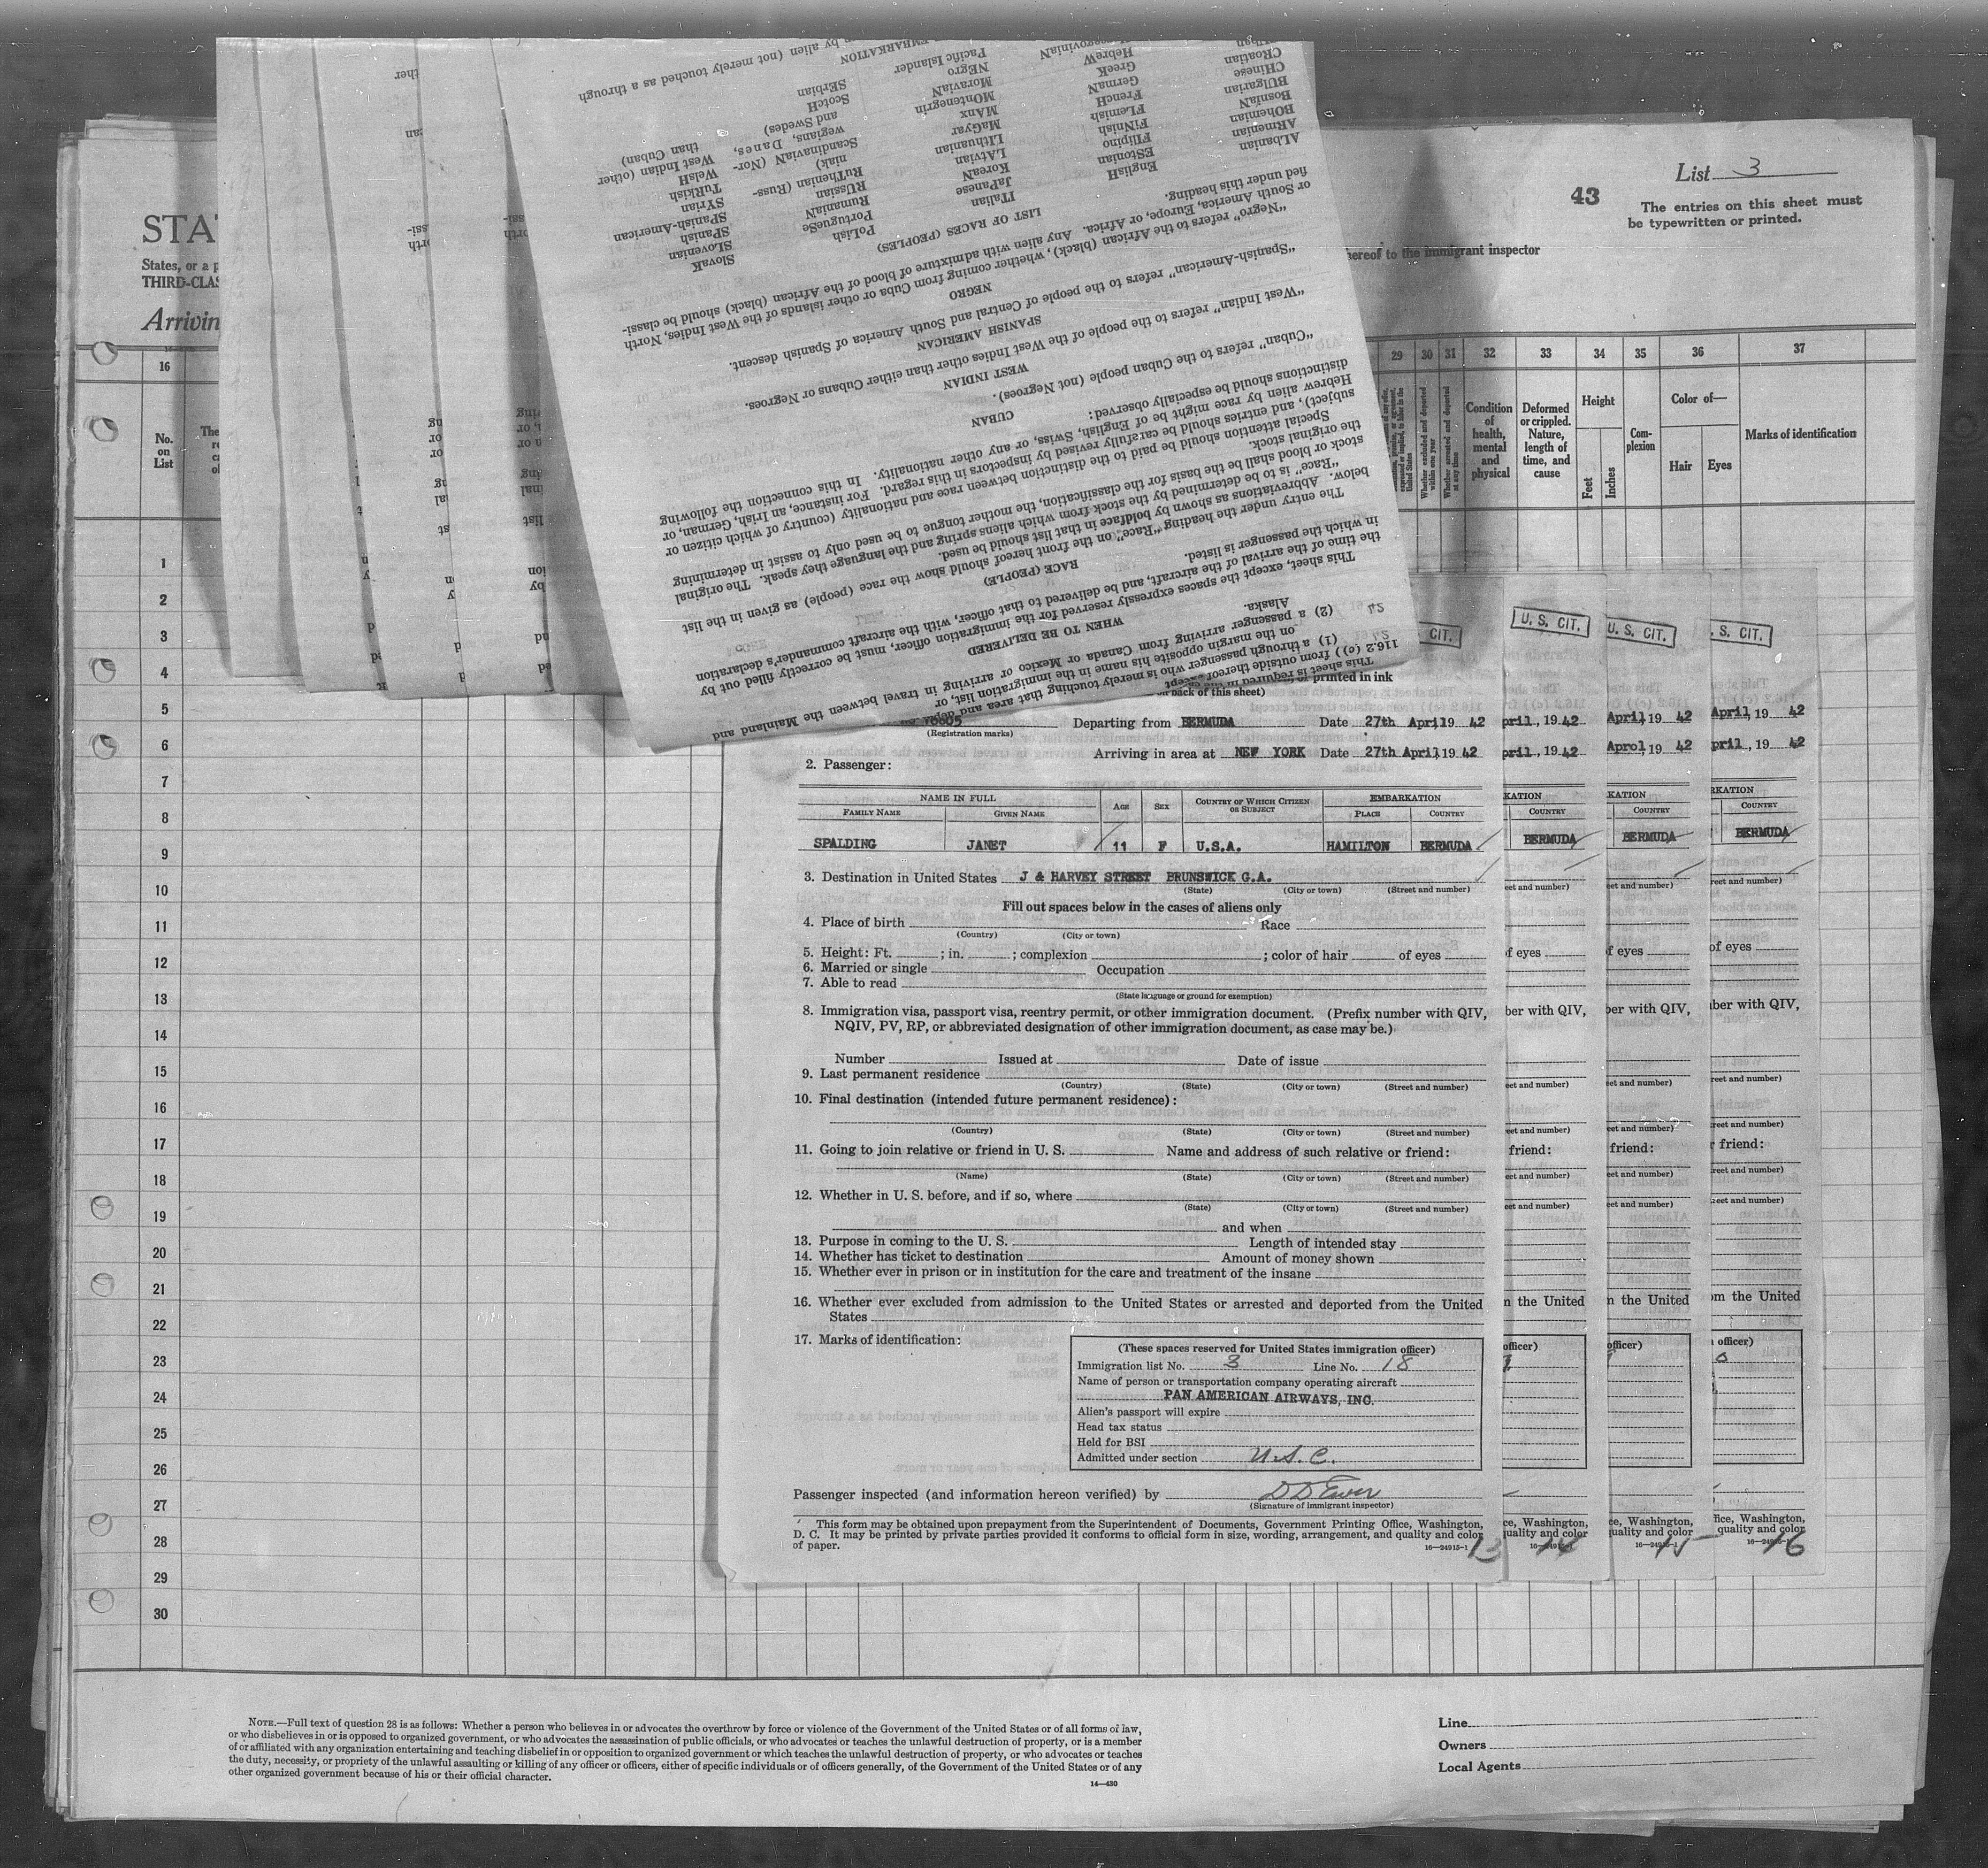 List 3
43
The entries on this sheet must
be typewritten or printed.
STA
States, or a p
THIRD-CLAS
Arrivin
hereof to the immigrant inspector
16
29 30 31 32 33 34 35 36 37
No.
on
List
Condition
of
health,
mental
and
physical
Deformed
or crippled.
Nature,
length of
time, and
cause
Height
Feet
Inches
Com-
plexion
Color of—
Hair
Eyes
Marks of identification
Whether excluded and deported
within one year
Whether arrested and deported
at any time
1
2
3
4
5
6
7
8
9
10
11
12
13
14
15
16
17
18
19
20
21
22
23
24
25
26
27
28
29
30
116.2 (c)) from outside thereof except
(1) a through passenger who is merely touching that area and
on the margin opposite his name in the immigration list, or
(2) a passenger arriving from Canada or Mexico or arriving in travel between the Mainland and
Alaska.
WHEN TO BE DELIVERED
This sheet, except the spaces expressly reserved for the immigration officer, must be correctly filled out by
the time of the arrival of the aircraft, and be delivered to that officer, with the aircraft commander's declaration
in which the passenger is listed.
RACE (PEOPLE)
The entry under the heading "Race" on the front hereof should show the race (people) as given in the list
below. Abbreviations as shown by boldface in that list should be used.
"Race" is to be determined by the stock from which aliens spring and the language they speak. The original
stock or blood shall be the basis for the classification, the mother tongue to be used only to assist in determining
the original stock.
Special attention should be paid to the distinction between race and nationality (country of which citizen or
subject), and entries should be carefully revised by inspectors in this regard. For instance, an Irish, German, or
Hebrew alien by race might be of English, Swiss, or any other nationality. In this connection the following
distinctions should be especially observed:
CUBAN
"Cuban" refers to the Cuban people (not Negroes).
WEST INDIAN
"West Indian" refers to the people of the West Indies other than either Cubans or Negroes.
SPANISH AMERICAN
"Spanish-American" refers to the people of Central and South America of Spanish descent.
NEGRO
"Negro" refers to the African (black), whether coming from Cuba or other islands of the West Indies, North
or South America, Europe, or Africa. Any alien with admixture of blood of the African (black) should be classi-
fied under this heading.
LIST OF RACES (PEOPLES)
ALbanian
ARmenian
BOhemian
BosniaN
BUlgarian
CHinese
CRoatian
EnglisH
EStonian
FIlipino
FINnish
FLemish
FrencH
GermaN
GreeK
HebreW
ITalian
JaPanese
KoreaN
LAtvian
LIthuanian
MaGyar
MAnx
MOntenegrin
MoraviaN
NEgro
Pacific Islander
PoLish
PortugueSe
RumaniaN
RUssian
RuThenian (Russ-
niak)
ScandinaviaN (Nor-
wegians, Danes,
and Swedes)
ScotcH
SErbian
SlovaK
SLOvenian
SPanish
SPanish-American
SYrian
TuRkish
WelsH
West Indian (other
than Cuban)
by alien (not merely touched as a through
(Registration marks)
Departing from BERMUDA Date 27th April, 19 42
Arriving in area at NEW YORK Date 27th April, 19 42
2. Passenger:
NAME IN FULL
FAMILY NAME
GIVEN NAME
AGE
SEX
COUNTRY OF WHICH CITIZEN
OR SUBJECT
EMBARKATION
PLACE
COUNTRY
SPALDING JANET 11 F U.S.A. HAMILTON BERMUDA
3. Destination in United States J & HARVEY STREET BRUNSWICK G.A.
(State) (City or town) (Street and number)
Fill out spaces below in the cases of aliens only
4. Place of birth Race
(Country) (City or town)
5. Height: Ft. ; in. ; complexion ; color of hair of eyes
6. Married or single Occupation
7. Able to read
(State language or ground for exemption)
8. Immigration visa, passport visa, reentry permit, or other immigration document. (Prefix number with QIV,
NQIV, PV, RP, or abbreviated designation of other immigration document, as case may be.)
Number Issued at Date of issue
9. Last permanent residence
(Country) (State) (City or town) (Street and number)
10. Final destination (intended future permanent residence):
(Country) (State) (City or town) (Street and number)
11. Going to join relative or friend in U. S. Name and address of such relative or friend:
(Name) (State) (City or town) (Street and number)
12. Whether in U. S. before, and if so, where
(State) (City or town) (Street and number)
and when
13. Purpose in coming to the U. S. Length of intended stay
14. Whether has ticket to destination Amount of money shown
15. Whether ever in prison or in institution for the care and treatment of the insane
16. Whether ever excluded from admission to the United States or arrested and deported from the United
States
17. Marks of identification:
(These spaces reserved for United States immigration officer)
Immigration list No. 3 Line No. 18
Name of person or transportation company operating aircraft
PAN AMERICAN AIRWAYS, INC.
Alien's passport will expire
Head tax status
Held for BSI
Admitted under section U.S.C.
Passenger inspected (and information hereon verified) by
(Signature of immigrant inspector)
This form may be obtained upon prepayment from the Superintendent of Documents, Government Printing Office, Washington,
D. C. It may be printed by private parties provided it conforms to official form in size, wording, arrangement, and quality and color
of paper.
16—24915-1
13
U. S. CIT.
pril, 19 42
pril, 19 42
KATION
COUNTRY
BERMUDA
14
U. S. CIT.
April, 19 42
Aprol, 19 42
KATION
COUNTRY
BERMUDA
15
S. CIT.
April, 19 42
pril, 19 42
RKATION
COUNTRY
BERMUDA
16
NOTE.—Full text of question 28 is as follows: Whether a person who believes in or advocates the overthrow by force or violence of the Government of the United States or of all forms of law,
or who disbelieves in or is opposed to organized government, or who advocates the assassination of public officials, or who advocates or teaches the unlawful destruction of property, or is a member
of or affiliated with any organization entertaining and teaching disbelief in or opposition to organized government or which teaches the unlawful destruction of property, or who advocates or teaches
the duty, necessity, or propriety of the unlawful assaulting or killing of any officer or officers, either of specific individuals or of officers generally, of the Government of the United States or of any
other organized government because of his or their official character.
14—430
Line
Owners
Local Agents